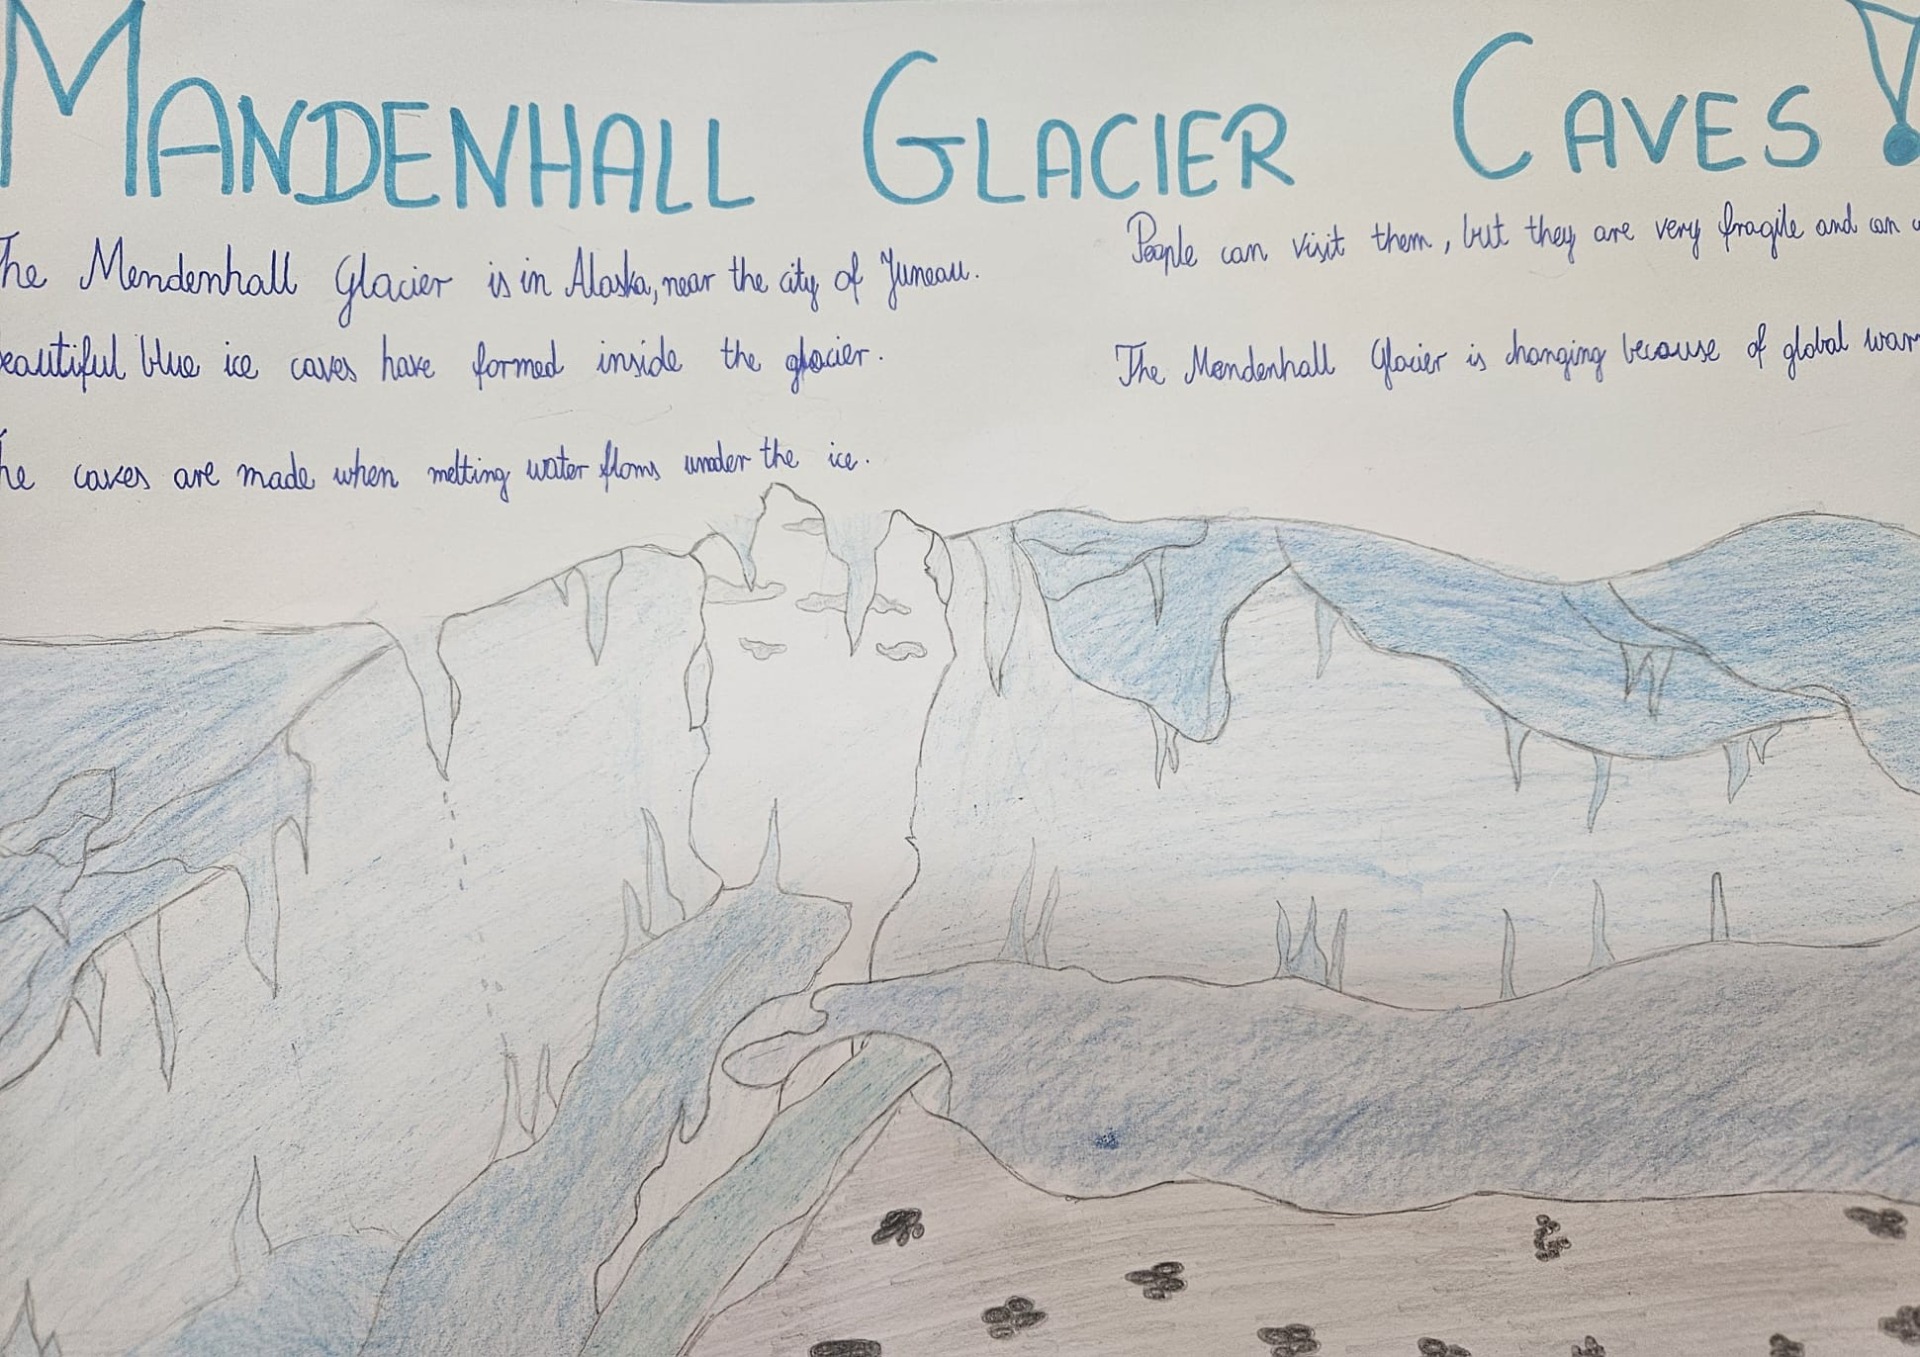 MANDENHALL GLACIER CAVES!
The Mendenhall Glacier is in Alaska, near the city of Juneau.
beautiful blue ice caves have formed inside the glacier.
The caves are made when melting water flows under the ice.
People can visit them, but they are very fragile and can
The Mendenhall Glacier is changing because of global